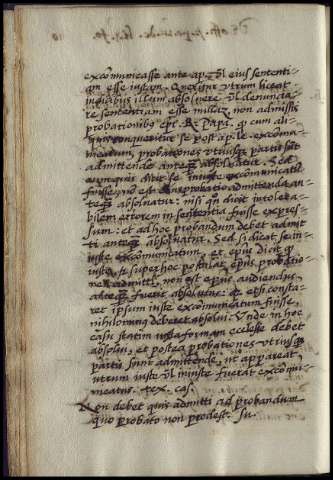 excōmunicasse ante ap. vl̄ eius sententi-
am esse iustam. Quęritur utrum liceat
iudicibus illum absoluere vl̄ denuncia-
re sententiam esse nullam non admissis
probationibus epī. R̄ Papa. q̄ cum ali-
quis conqueritur se post ap.le excōmu-
nicatum, probationes utriusq; partis sunt
admittendę anteq̄ absoluatur. Sed
cum quis dicit se iniuste excommunicatū
fuisse, non est probatio admittenda an-
teq̄ absoluatur: nisi q̄n dicit intolera-
bilem errorem in sententia fuisse expres-
sum: et ad hoc probandum debet admit-
ti anteq̄ absoluatur. Sed si dicat se in-
iuste excōmunicatum, et epūs dicit q̄
iuste, et super hoc postulat epūs probatio-
nes admitti, non est epūs audiendus
anteq̄ fuerit absolutus: q̄ etsi consta-
ret ipsum iuste excōmunicatum fuisse,
nihilominus deberet absolui. Unde in hoc
casu statim iuxta formam ecclesię debet
absolui, et postea probationes utriusq;
partis sunt admittendę, ut appareat,
utrum iuste vl̄ iniuste fuerat excōmu-
nicatus. xex. cas.
Non debet quis admitti ad probandum
quo probato non prodest. Su.